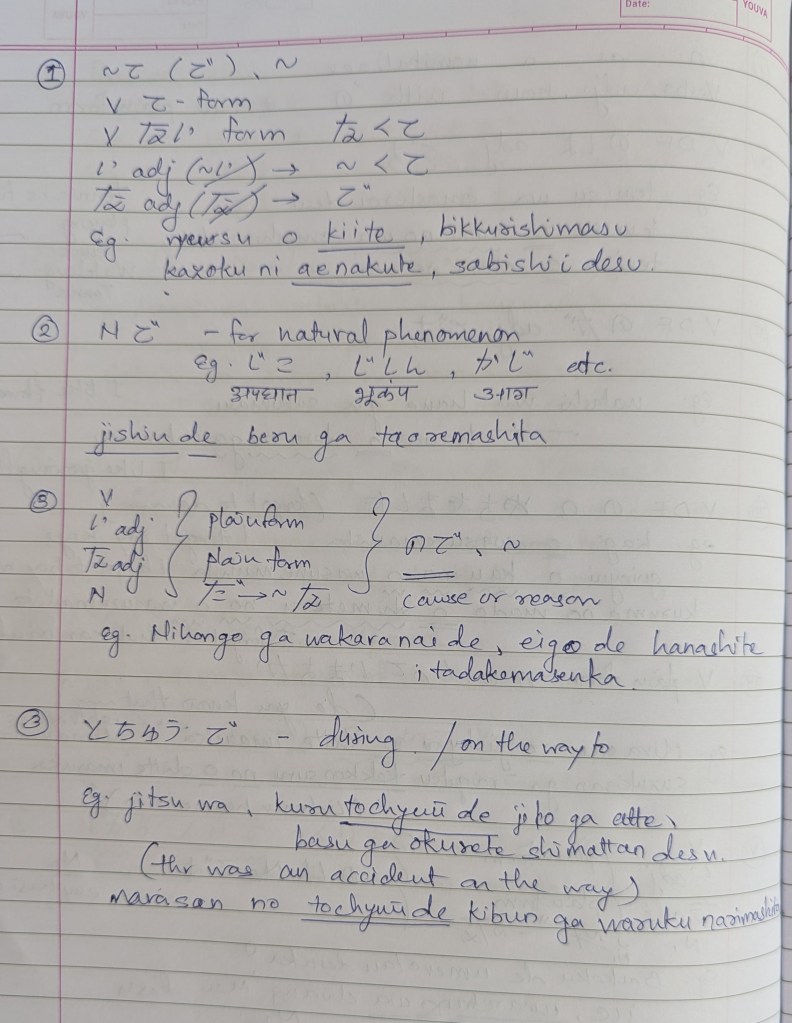 Date:
YOUVA
① ~て (で)、~
V て - form
V ない form なくて
い adj (~い) → ~くて
な adj (な) → で
Eg. nyuusu o kiite, bikkurishimasu
kazoku ni aenakute, sabishii desu.
② N で - for natural phenomenon
Eg. じこ, じしん, かじ etc.
अपघात भूकंप आग
jishin de beru ga taoremashita
③ V
い adj plainform
な adj plain form ので、~
N だ → ~な cause or reason
eg. Nihongo ga wakaranai de, eigo de hanashite
itadakemasenka.
③ とちゅう で - during / on the way to
Eg. jitsu wa, kuru tochyuu de jiko ga atte,
basu ga okurete shimattan desu.
(thr was an accident on the way)
marasan no tochyuu de kibun ga waruku narimashita